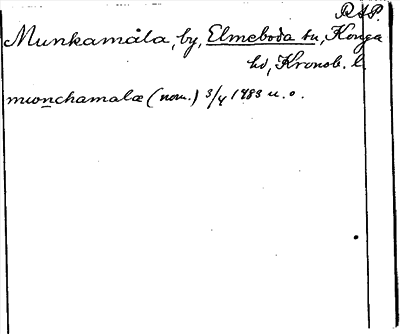 RAP.
Munkamåla, by, Elmeboda sn, Konga
hd, Kronob. l.
munchamalæ (nom.) 3/4 1483 u.o.